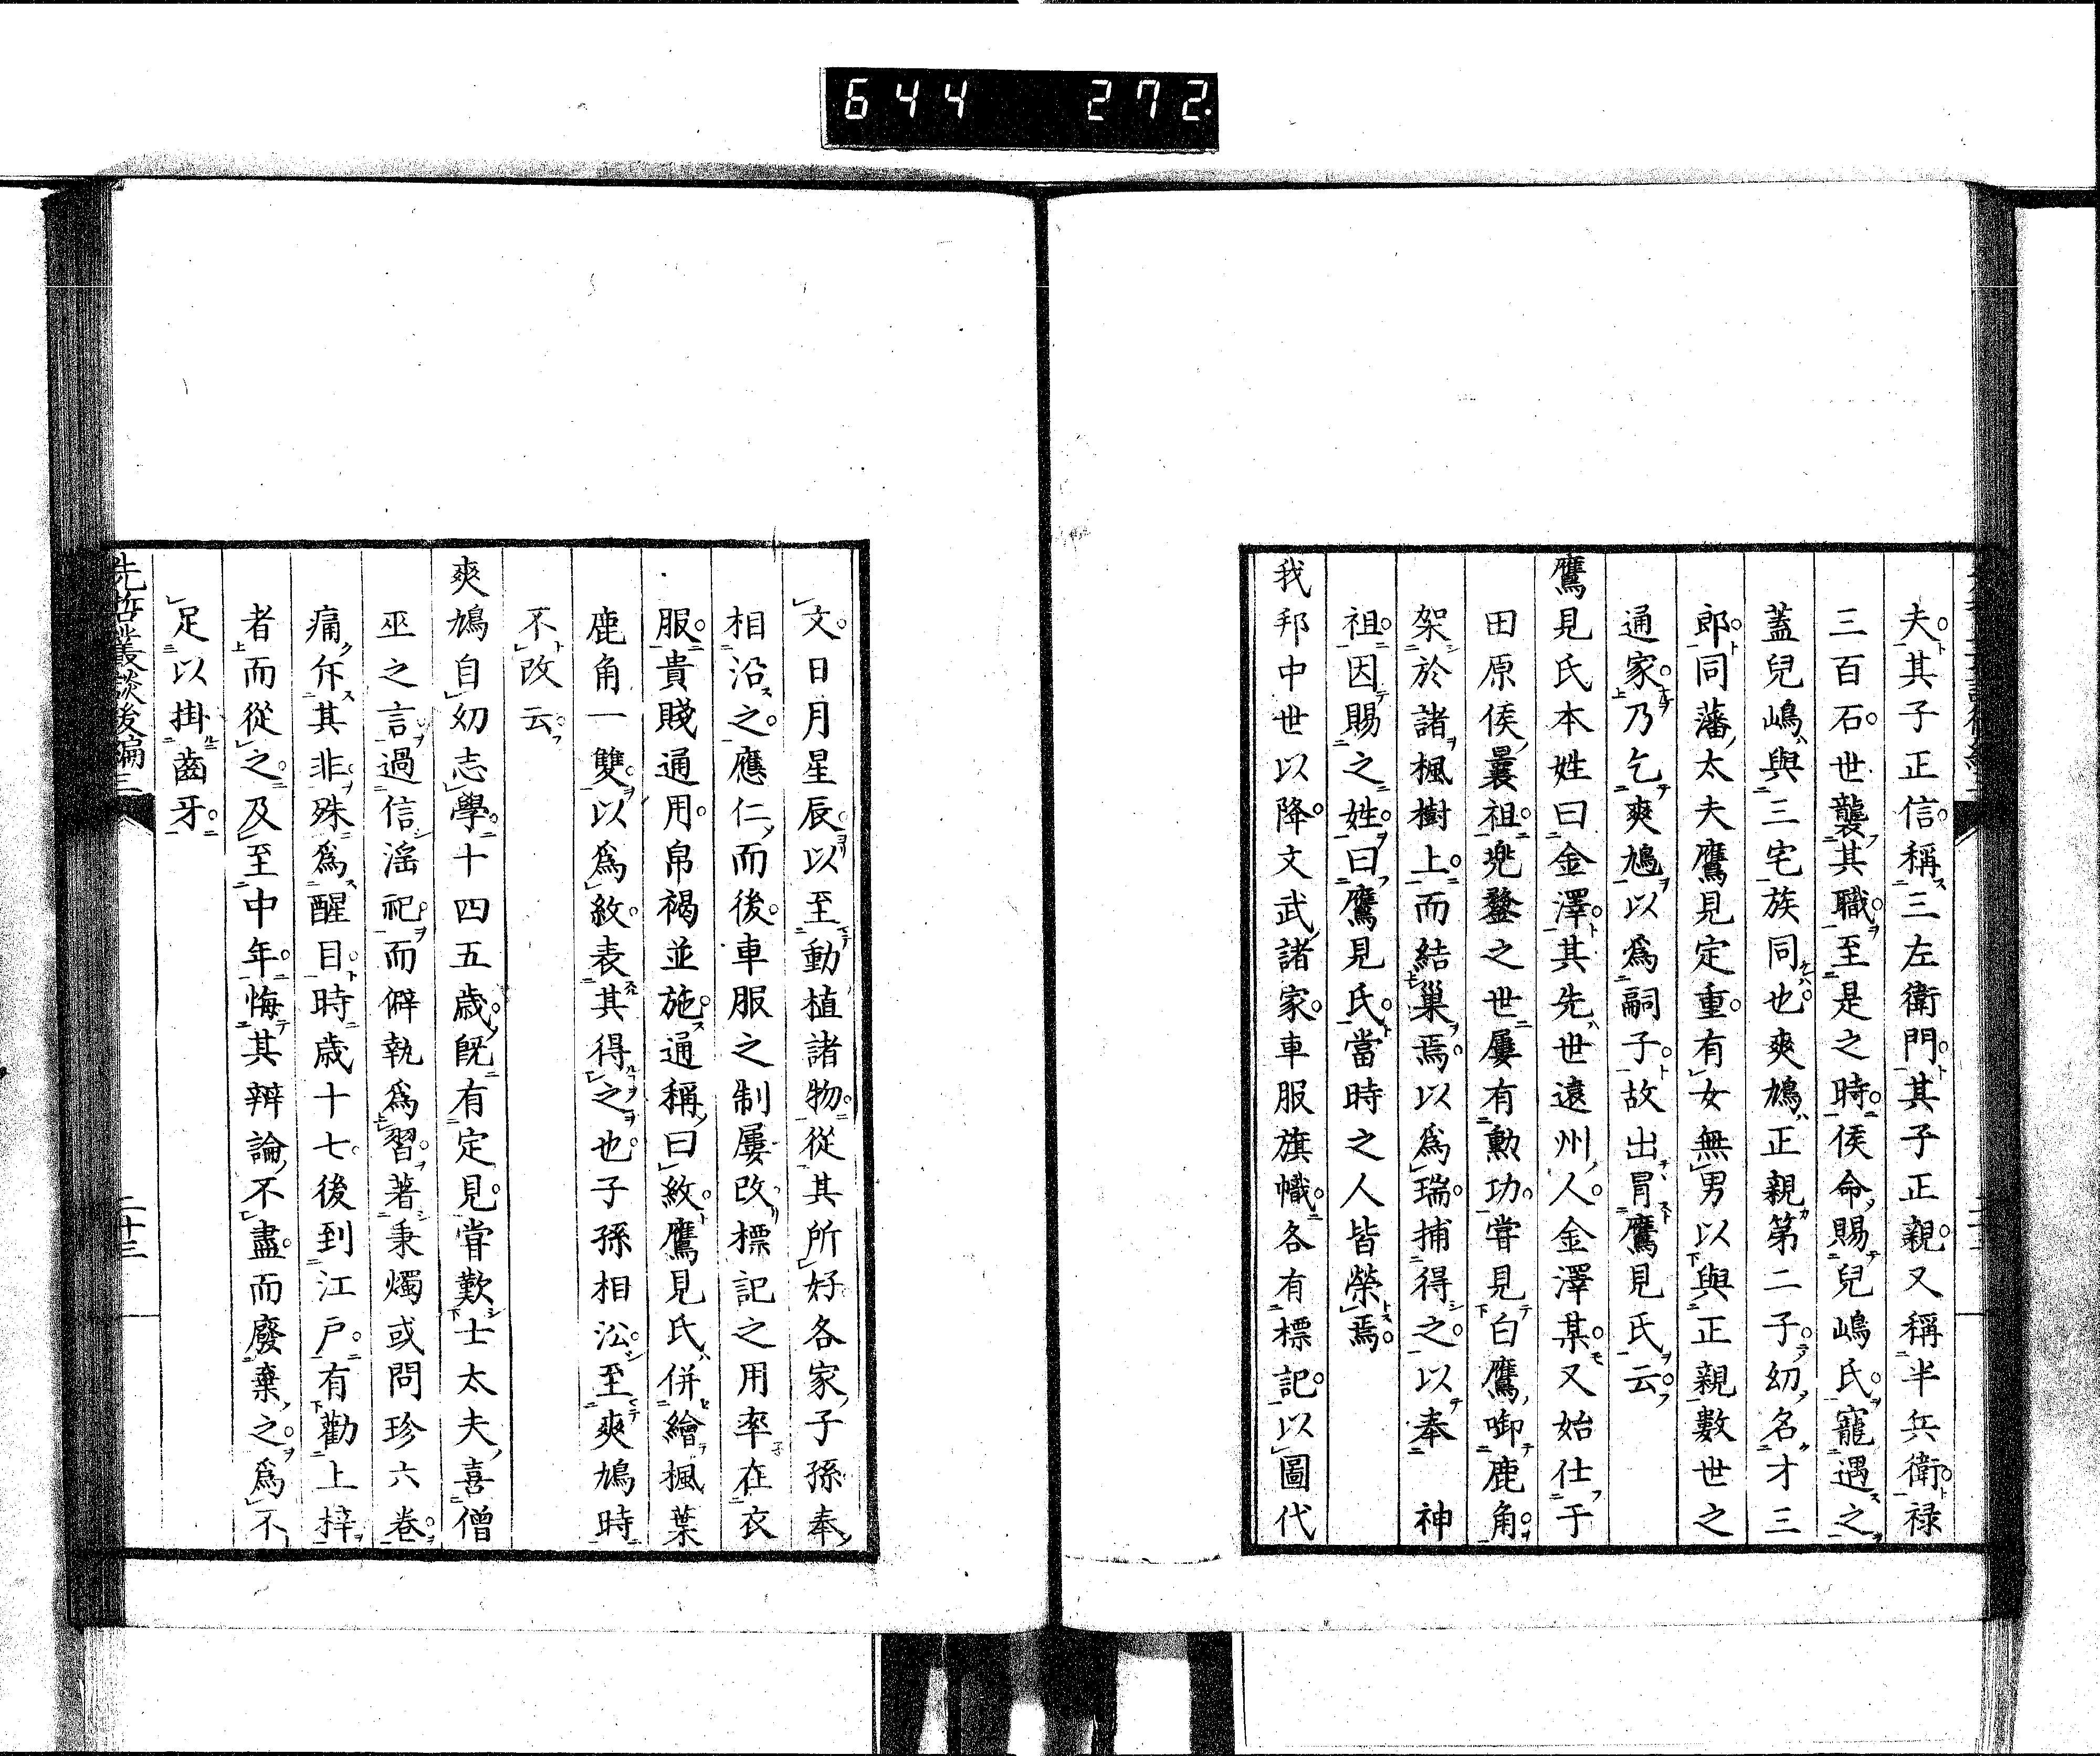 644 272.
夫其子正信稱三左衛門其子正親又稱半兵衛禄
三百石世襲其職至是之時侯命賜兒嶋氏寵遇之
蓋兒嶋與三宅族同也爽鳩正親第二子幼名才三
郎同藩太夫鷹見定重有女無男以與正親數世之
通家乃乞爽鳩以爲嗣子故出冐鷹見氏云
鷹見氏本姓曰金澤其先世遠州人金澤某又始仕于
田原侯曩祖兜鍪之世屢有勲功嘗見白鷹啣鹿角
架於諸楓樹上而結巢焉以爲瑞捕得之以奉　神
祖因賜之姓曰鷹見氏當時之人皆榮焉
我邦中世以降文武諸家車服旗幟各有標記以圖代
文日月星辰以至動植諸物從其所好各家子孫奉
相沿之應仁而後車服之制屢改標記之用率在衣
服貴賤通用帛褐並施通稱曰紋鷹見氏併繪楓葉
鹿角一雙以爲紋表其得之也子孫相㳂至爽鳩時
不改云
爽鳩自幼志學十四五歲既有定見嘗歎士太夫喜僧
巫之言過信滛祀而僻執爲習著秉燭或問珍六卷
痛斥其非殊爲醒目時歲十七後到江戸有勸上梓
者而從之及至中年悔其辨論不盡而廢棄之爲不
足以掛齒牙
先哲叢談後編三
二十三